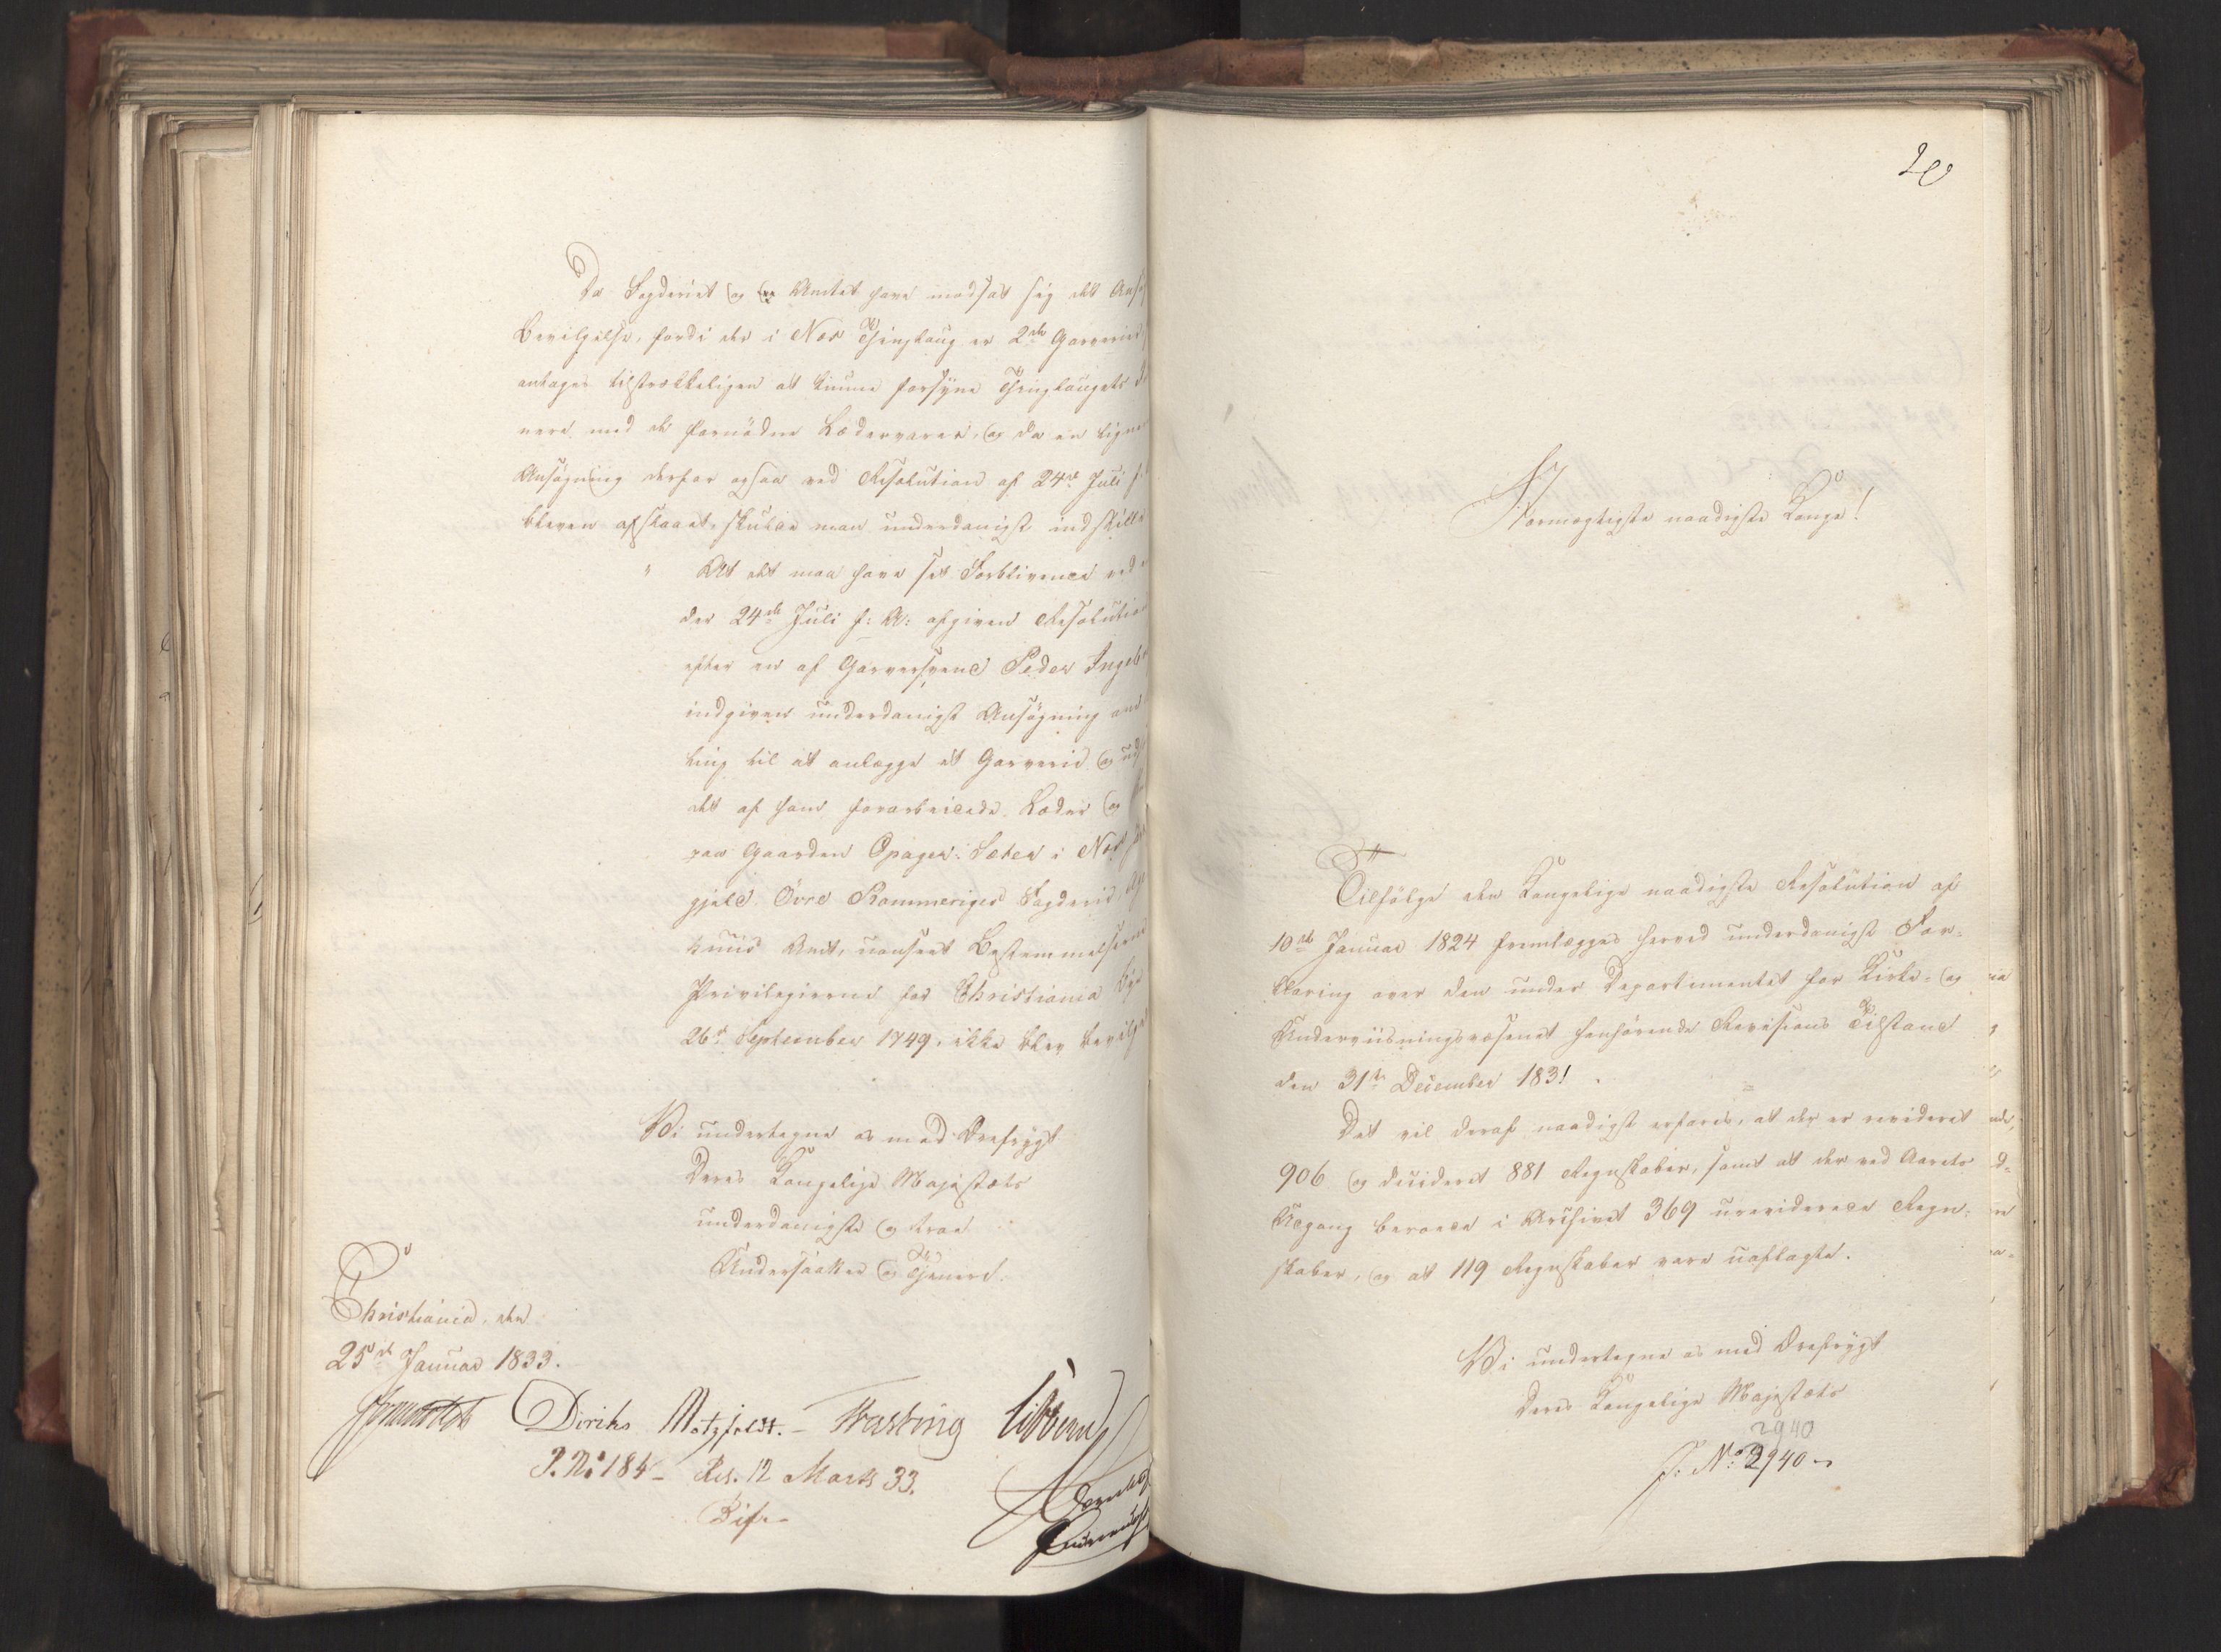 Da Fogderiet og Amtet have modsat sig det
Bevilgelse, fordi der i Næs Thinglaug er 2de Garverier,
antages tilstrækkeligen at kunne forsyne Thinglaugets
nere med de fornødne Lædervarer, og da en
Ansøgning derfor ogsaa ved Resolution af 24de Juli
bleven afslaaet, skulde man underdanigst indstille
" At det maa have sit Forblivende ved
der 24de Juli f: A: afgiven Resolution
efter en af Garversvend Peder
indgiven underdanigst Ansøgning om
ling til at anlægge et Garverie og
det af ham forarbeidede Læder og
paa Gaarden Opager-Sæter i Næs
gjeld, Øvre Rommeriges Fogderie,
huus Amt, uanseet Bestemmelserne
Privilegierne for Christiania
26de September 1749, ikke blev
Vi undertegne os med Ærefrygt
Deres Kongelige Majestæts
underdanigste og troe
Undersaatter og Tjenere.
Christiania, den
25de Januar 1833.
Diriks Motzfeldt. Fasting
J. No 184 - Res. 12 Marts 33.
20
Stormægtigste naadigste Konge!
Tilfølge den Kongelige naadigste Resolution af
10de Januar 1824 fremlægges herved underdanigst For-
klaring over den under Departementet for Kirke- og
Underviisningsvæsenet henhørende Revisions Tilstand
den 31te December 1831.
Det vil deraf naadigst erfares, at der er revideret
906 og decideret 881 Regnskaber, samt at der ved Aarets
Udgang beroede i Archivet 369 ureviderede Regn-
skaber, og at 119 Regnskaber vare uaflagte.
Vi undertegne os med Ærefrygt
Deres Kongelige Majestæts
2940
J: No: 2940